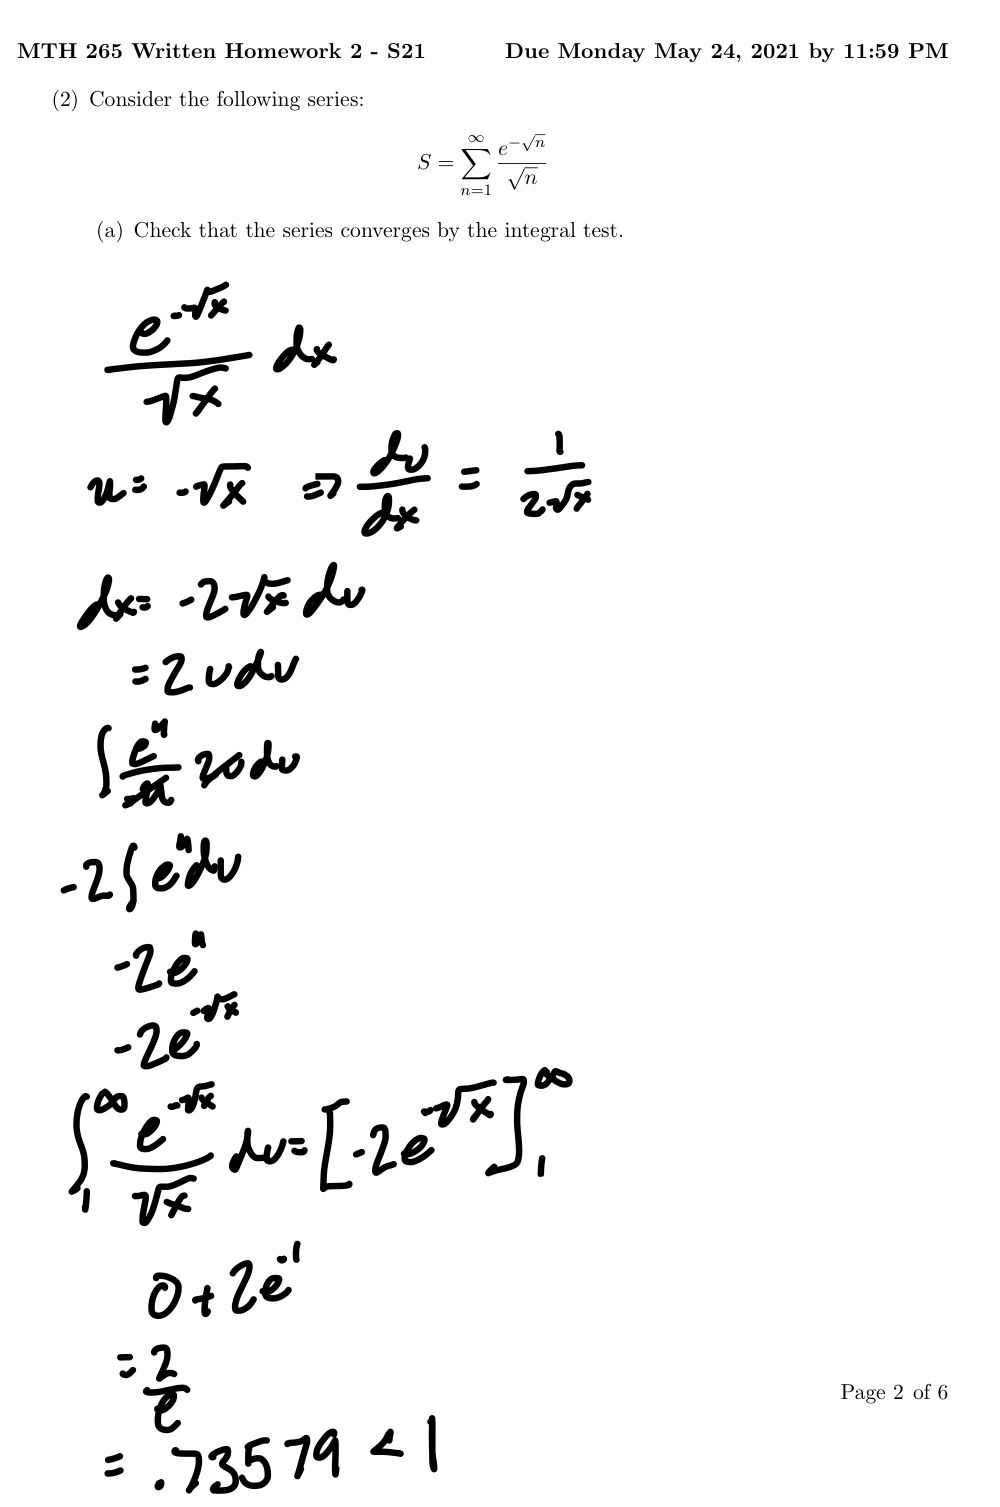 MTH 265 Written Homework 2 - S21 Due Monday May 24, 2021 by 11:59 PM
(2) Consider the following series:
S = ∑_{n=1}^{∞} e^{-√n}/√n
(a) Check that the series converges by the integral test.
e^{-√x}/√x dx
u = -√x ⇒ du/dx = 1/(2√x)
dx = -2√x du
= 2 u du
∫ e^u/-u 2u du
-2 ∫ e^u du
-2e^u
-2e^{-√x}
∫_1^∞ e^{-√x}/√x du = [-2e^{-√x}]_1^∞
0 + 2e^{-1}
= 2/e
= .73579 < 1
Page 2 of 6